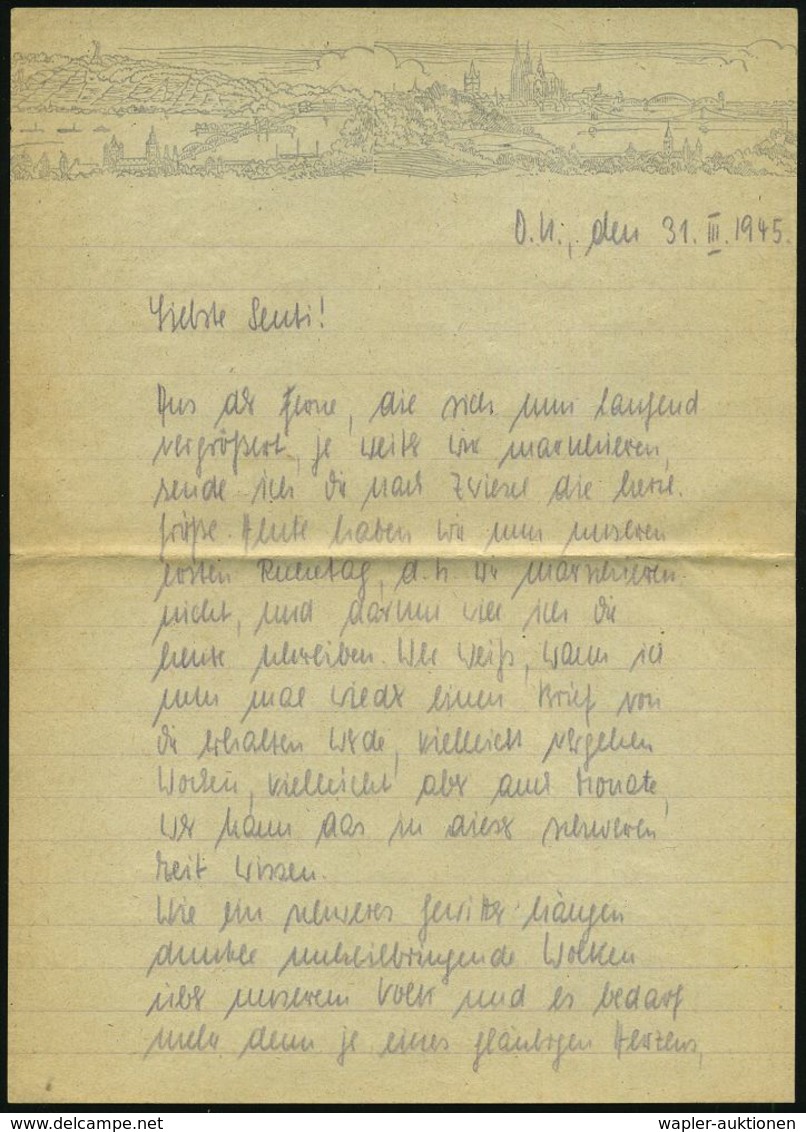 O.U., den 31. III. 1945.
Liebste Senti!
Aus der Ferne, die sich nun laufend
vergrößert, je weiter wir marschieren,
sende ich dir nach Zwiesel die herzl.
Grüße. Heute haben wir nun unseren
ersten Ruhetag, d.h. wir marschieren
nicht, und darum will ich dir
heute schreiben. Wer weiß, wann ich
nun mal wieder einen Brief von
dir erhalten werde, vielleicht vergehen
Wochen, vielleicht aber auch Monate,
wer kann das in dieser schweren
Zeit wissen.
Wie ein schweres Gewitter hängen
dunkle unheilbringende Wolken
über unserem Volk und es bedarf
mehr denn je eines gläubigen Herzens,
wapler-auktionen